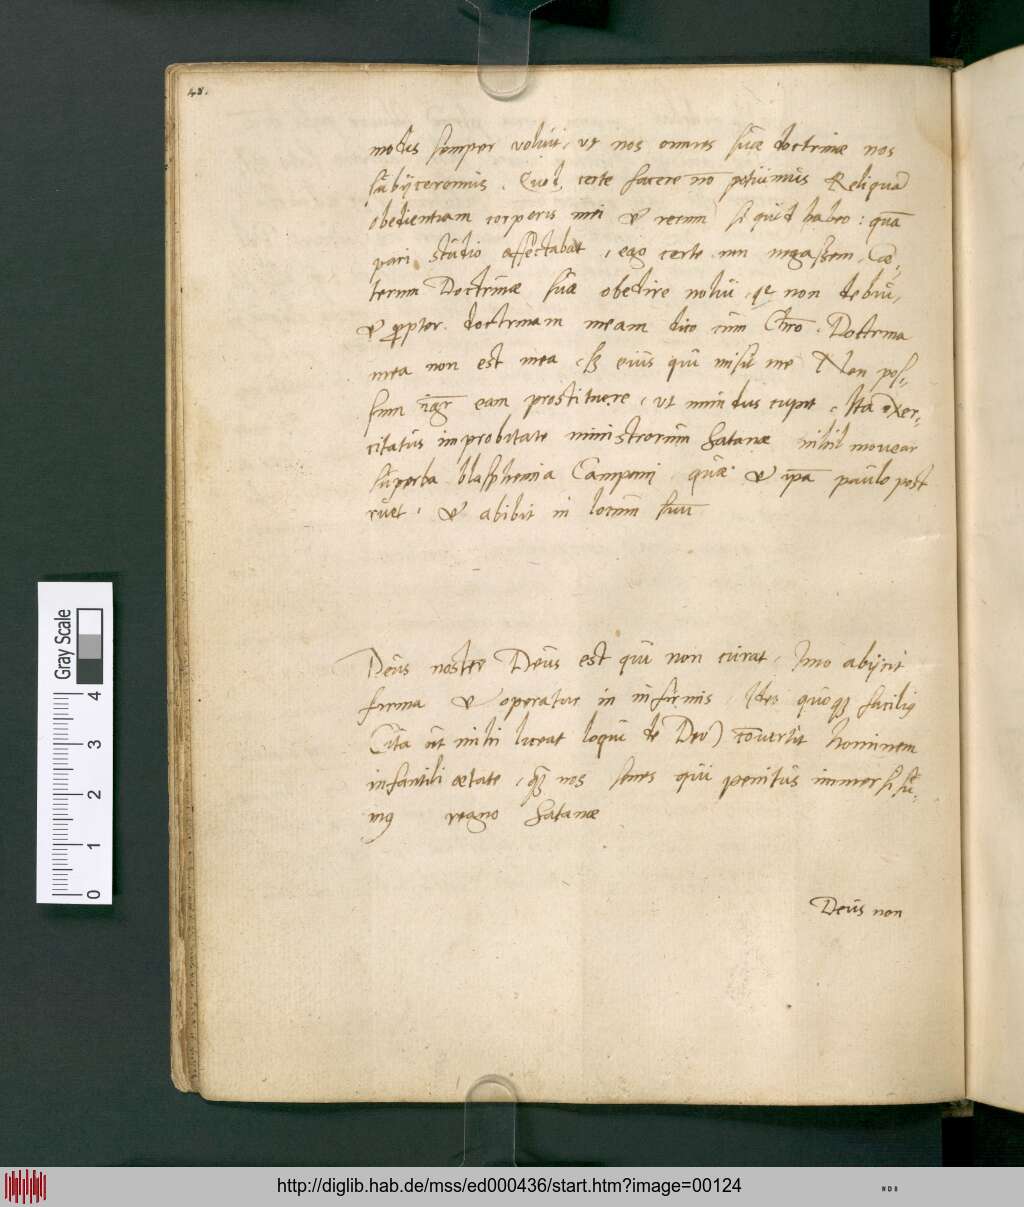 48.
modis semper voluit, ut nos omnes suae doctrinae nos
subijceremus. Quod certe facere nō potuimus Reliquā
obedientiam corporis mei & rerum si quid habeo: quā
pari studio affectabat, ego certe non negassem. Cae-
terum Doctrinae suae obedire nolui, qa non debui,
& ꝓpter doctrinam meam dico cum Chro. Doctrina
mea non est mea, sꝫ eius qui misit me Non pos-
sum igr̄ eam prostituere, ut mundus cupit, Ita exer-
citatus improbitate ministrorum Satanae nihil movear
superba blasphemia Campani, quae & ipā paulo post
ruet, & abibit in locum suū
Deus noster Deus est qui non curat, Imo abijcit
firma & operatur in infirmis, Ideo quoqꝫ facilius
(ita ut mihi liceat loqui de Deo) conuertit hominem
infantili aetate, quā nos senes qui penitus immersi su-
mus regno Satanae
Deus non
Gray Scale
0 1 2 3 4
http://diglib.hab.de/mss/ed000436/start.htm?image=00124